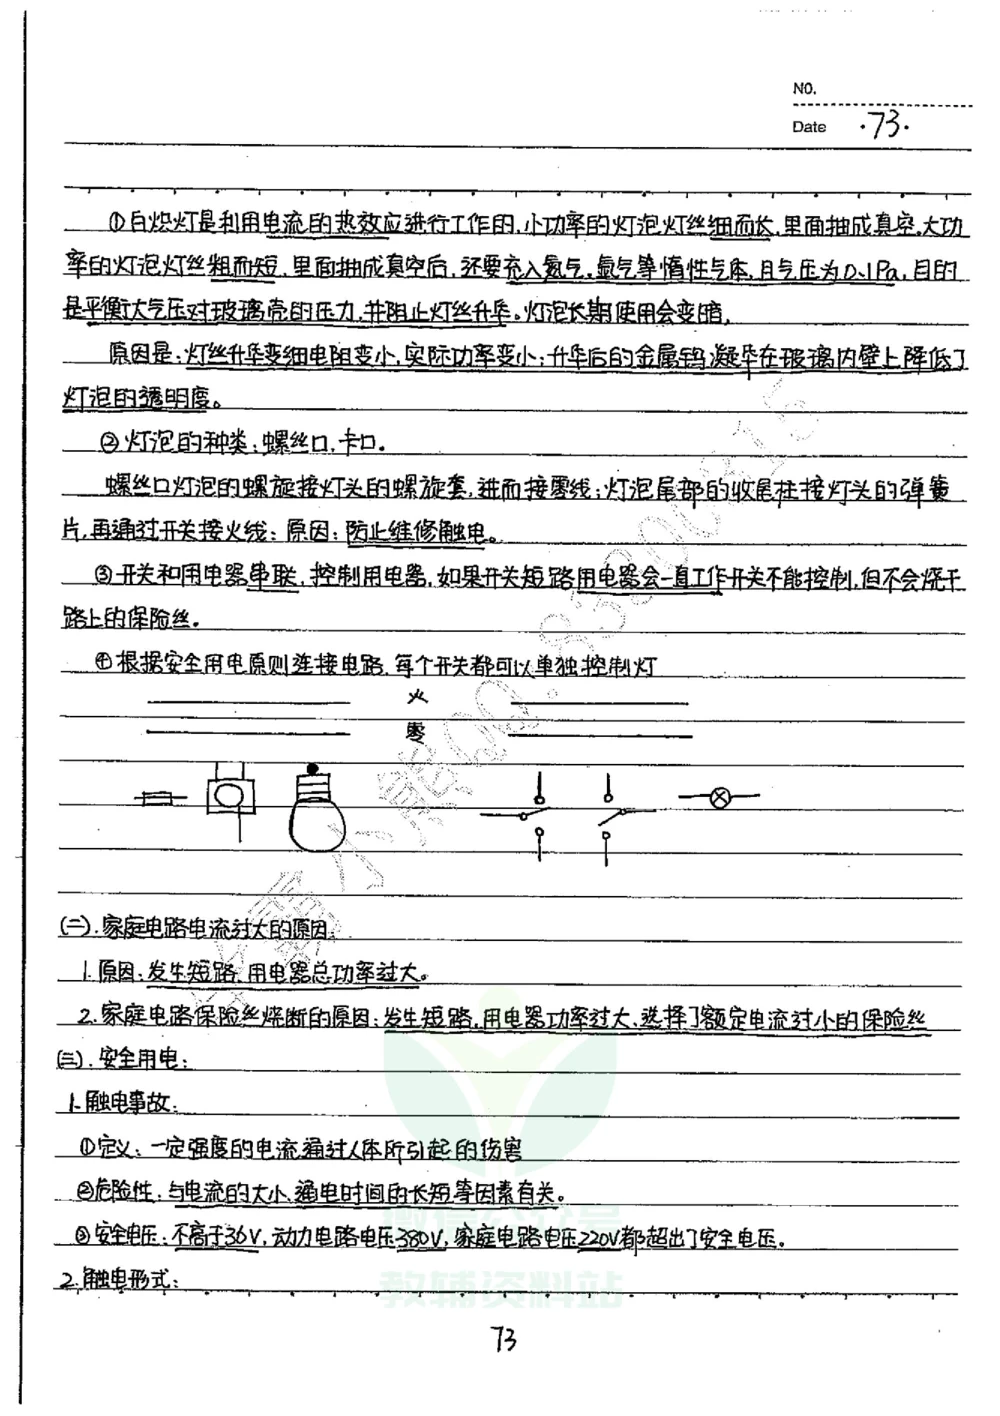 NO.
Date ·73·
①白炽灯是利用电流的热效应进行工作的,小功率的灯泡灯丝细而长,里面抽成真空,大功
率的灯泡灯丝粗而短,里面抽成真空后,还要充入氮气、氩气等惰性气体,且气压为0.1Pa,目的
是平衡大气压对玻璃壳的压力,并阻止灯丝升华。灯泡长期使用会变暗,
原因是:灯丝升华变细电阻变小,实际功率变小;升华后的金属钨凝华在玻璃内壁上降低了
灯泡的透明度。
②灯泡的种类:螺丝口,卡口。
螺丝口灯泡的螺旋接灯头的螺旋套,进而接零线;灯泡尾部的收尾柱接灯头的弹簧
片,再通过开关接火线;原因:防止维修触电。
③开关和用电器串联,控制用电器,如果开关短路用电器会一直工作开关不能控制,但不会烧干
路上的保险丝。
④根据安全用电原则连接电路,每个开关都可以单独控制灯
火
零
(二).家庭电路电流过大的原因:
1.原因:发生短路,用电器总功率过大。
2.家庭电路保险丝烧断的原因:发生短路,用电器功率过大、选择了额定电流过小的保险丝
(三).安全用电:
1.触电事故:
①定义:一定强度的电流通过人体所引起的伤害
②危险性:与电流的大小、通电时间的长短等因素有关。
③安全电压:不高于36V,动力电路电压380V,家庭电路电压220V都超出了安全电压。
2.触电形式:
教辅资料站
73